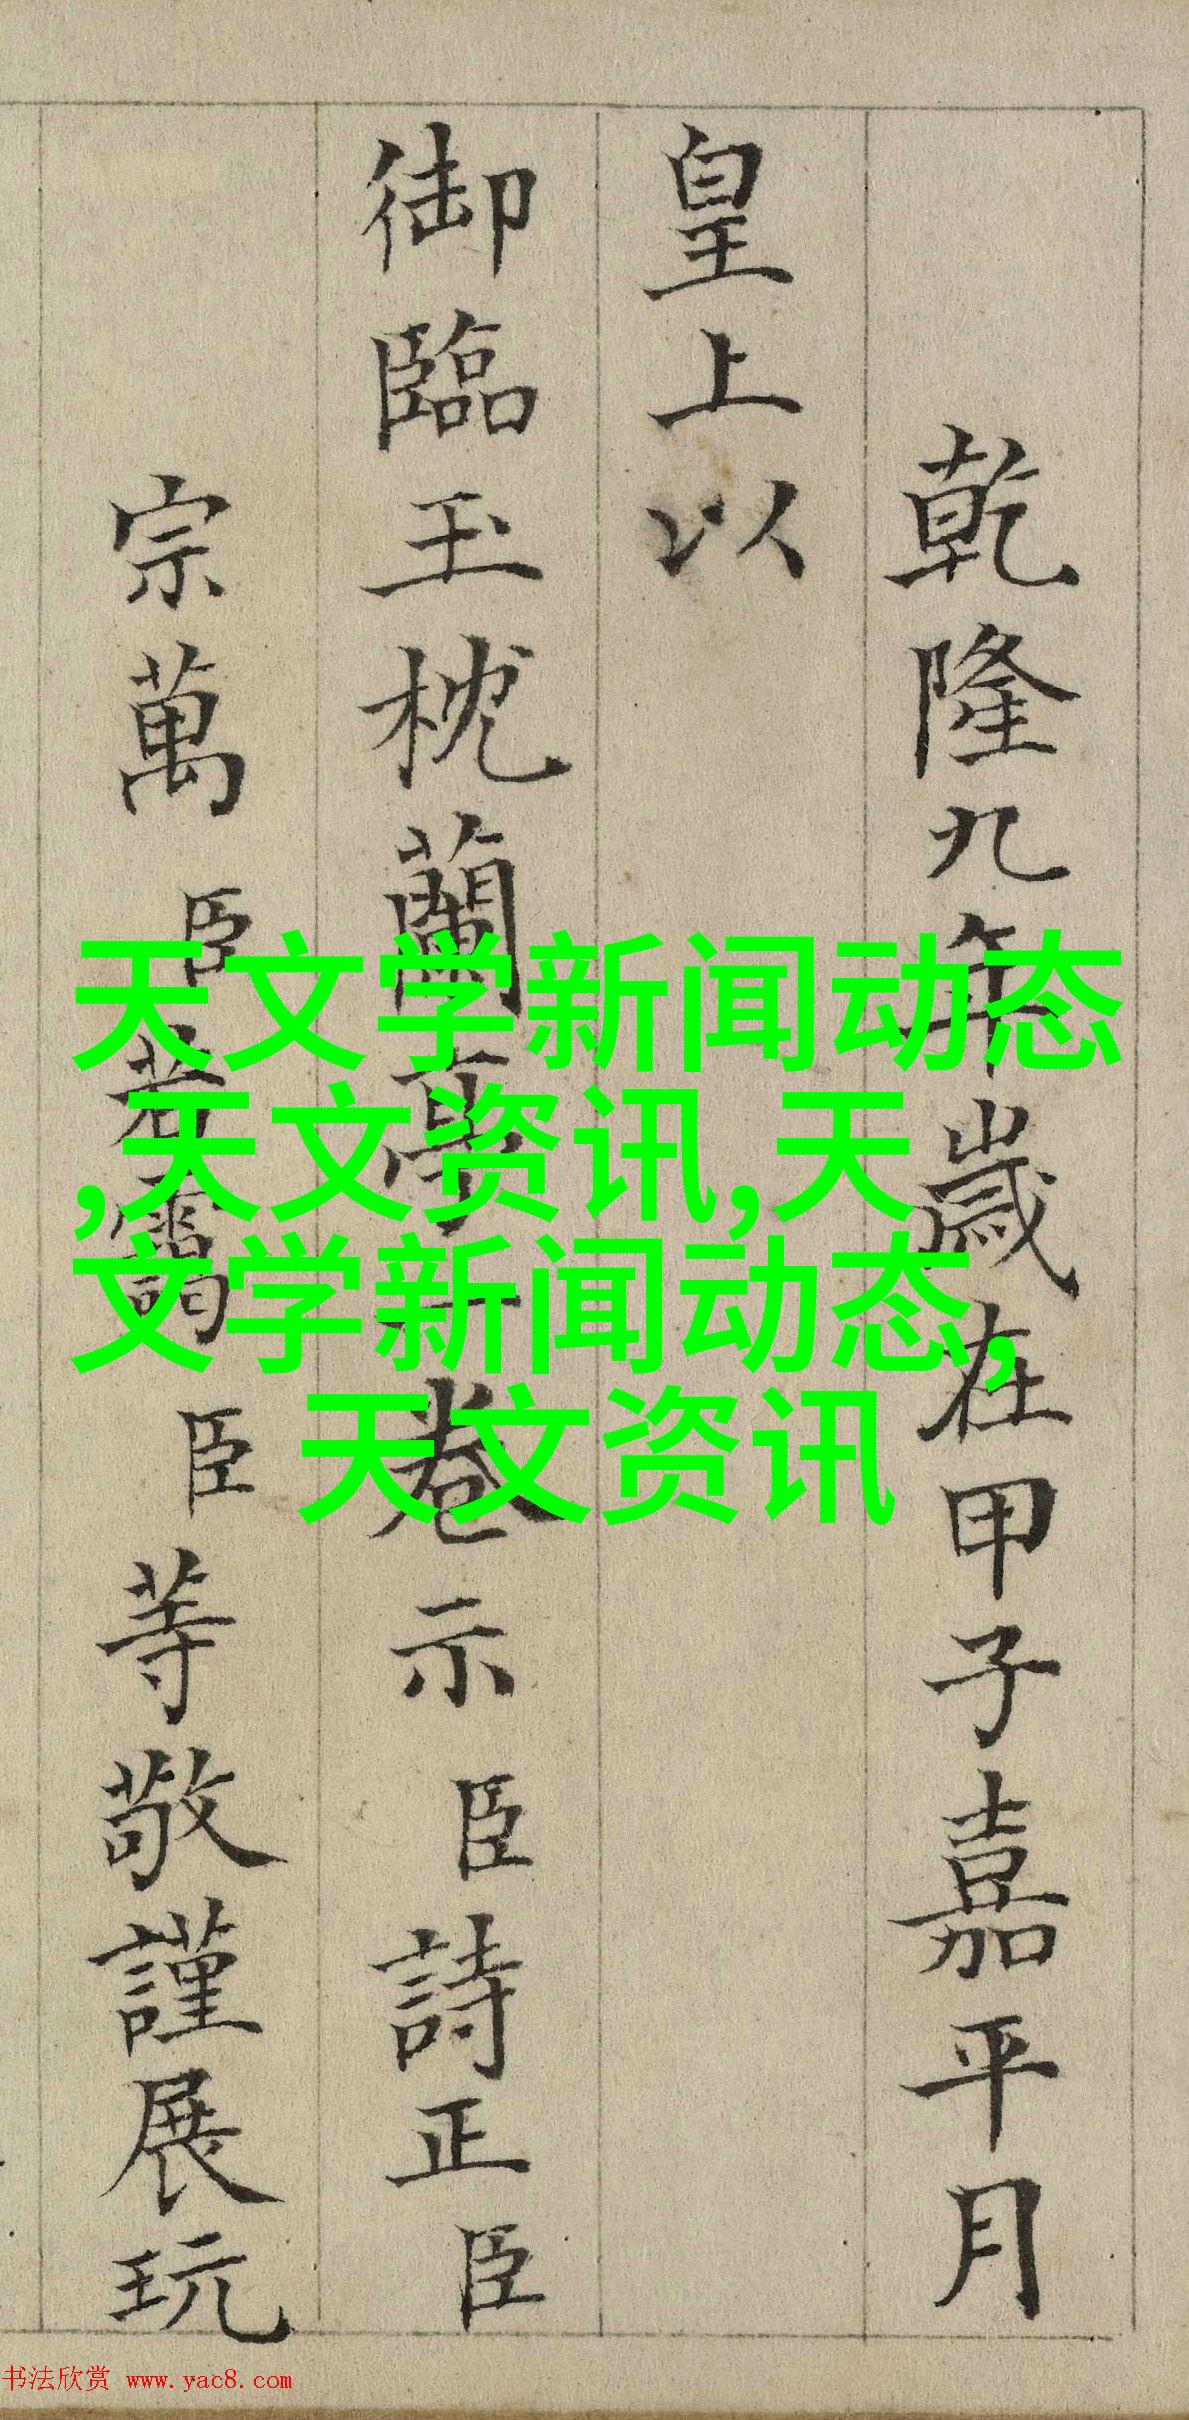 乾隆九年歲在甲子嘉平月
皇上以
御臨玉枕蘭亭一卷示臣詩正臣
宗萬臣若靄臣等敬謹展玩
天文学新闻动态
,天文资讯,天
文学新闻动态,
天文资讯
书法欣赏 www.yac8.com